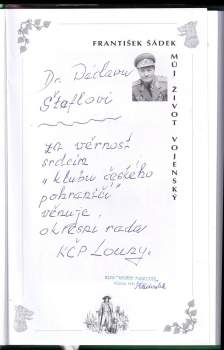 FRANTIŠEK ŠÁDEK
MŮJ ŽIVOT VOJENSKÝ
Dr. Václavu
Štaflovi
za věrnost
srdcím
"klubu českého
pohraničí"
věnuje
okresní rada
KČP Louny.